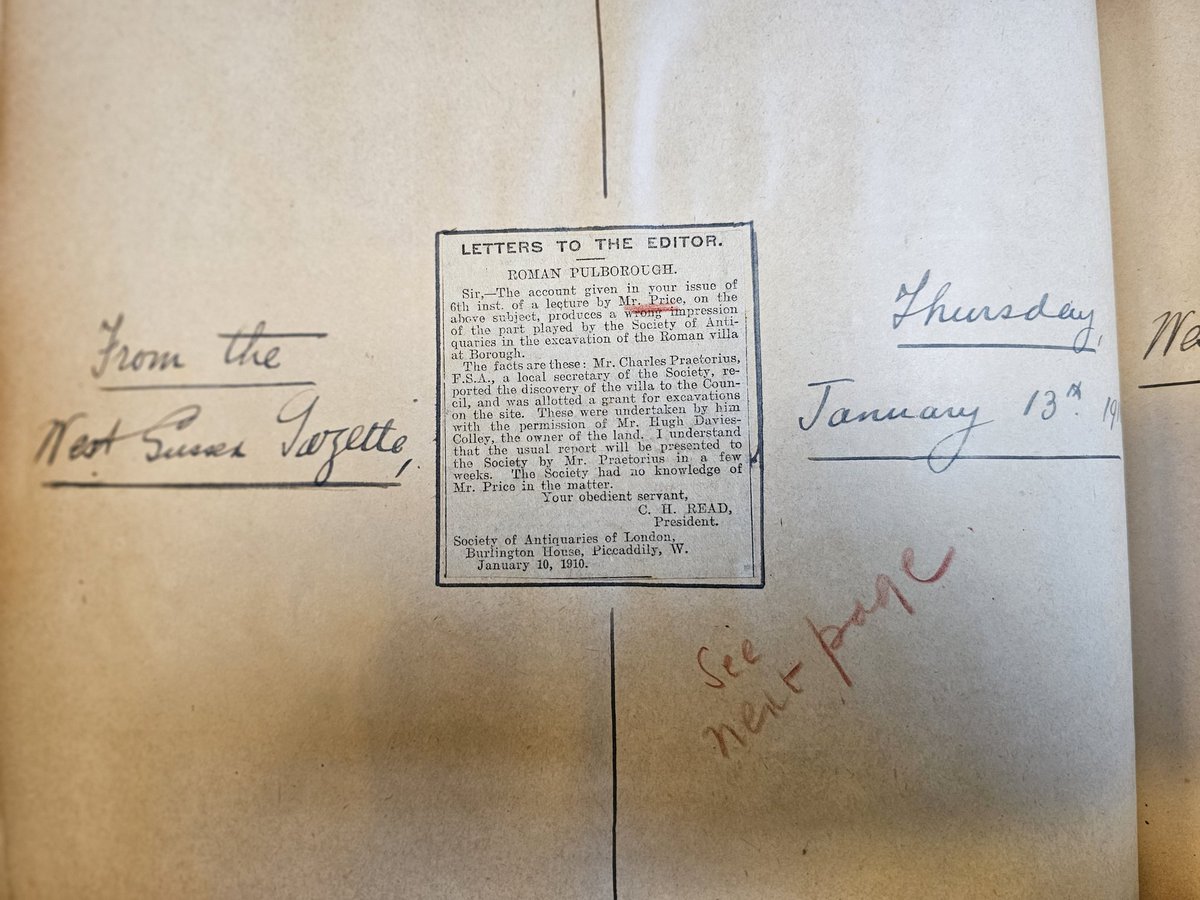 From the
West Sussex Gazette,
LETTERS TO THE EDITOR.
ROMAN PULBOROUGH.
Sir,—The account given in your issue of
6th inst. of a lecture by Mr. Price, on the
above subject, produces a wrong impression
of the part played by the Society of Anti-
quaries in the excavation of the Roman villa
at Borough.
The facts are these: Mr. Charles Praetorius,
F.S.A., a local secretary of the Society, re-
ported the discovery of the villa to the Coun-
cil, and was allotted a grant for excavations
on the site. These were undertaken by him
with the permission of Mr. Hugh Davies-
Colley, the owner of the land. I understand
that the usual report will be presented to
the Society by Mr. Praetorius in a few
weeks. The Society had no knowledge of
Mr. Price in the matter.
Your obedient servant,
C. H. READ,
President.
Society of Antiquaries of London,
Burlington House, Piccadilly, W.
January 10, 1910.
Thursday,
January 13th. 19
See
next page
We